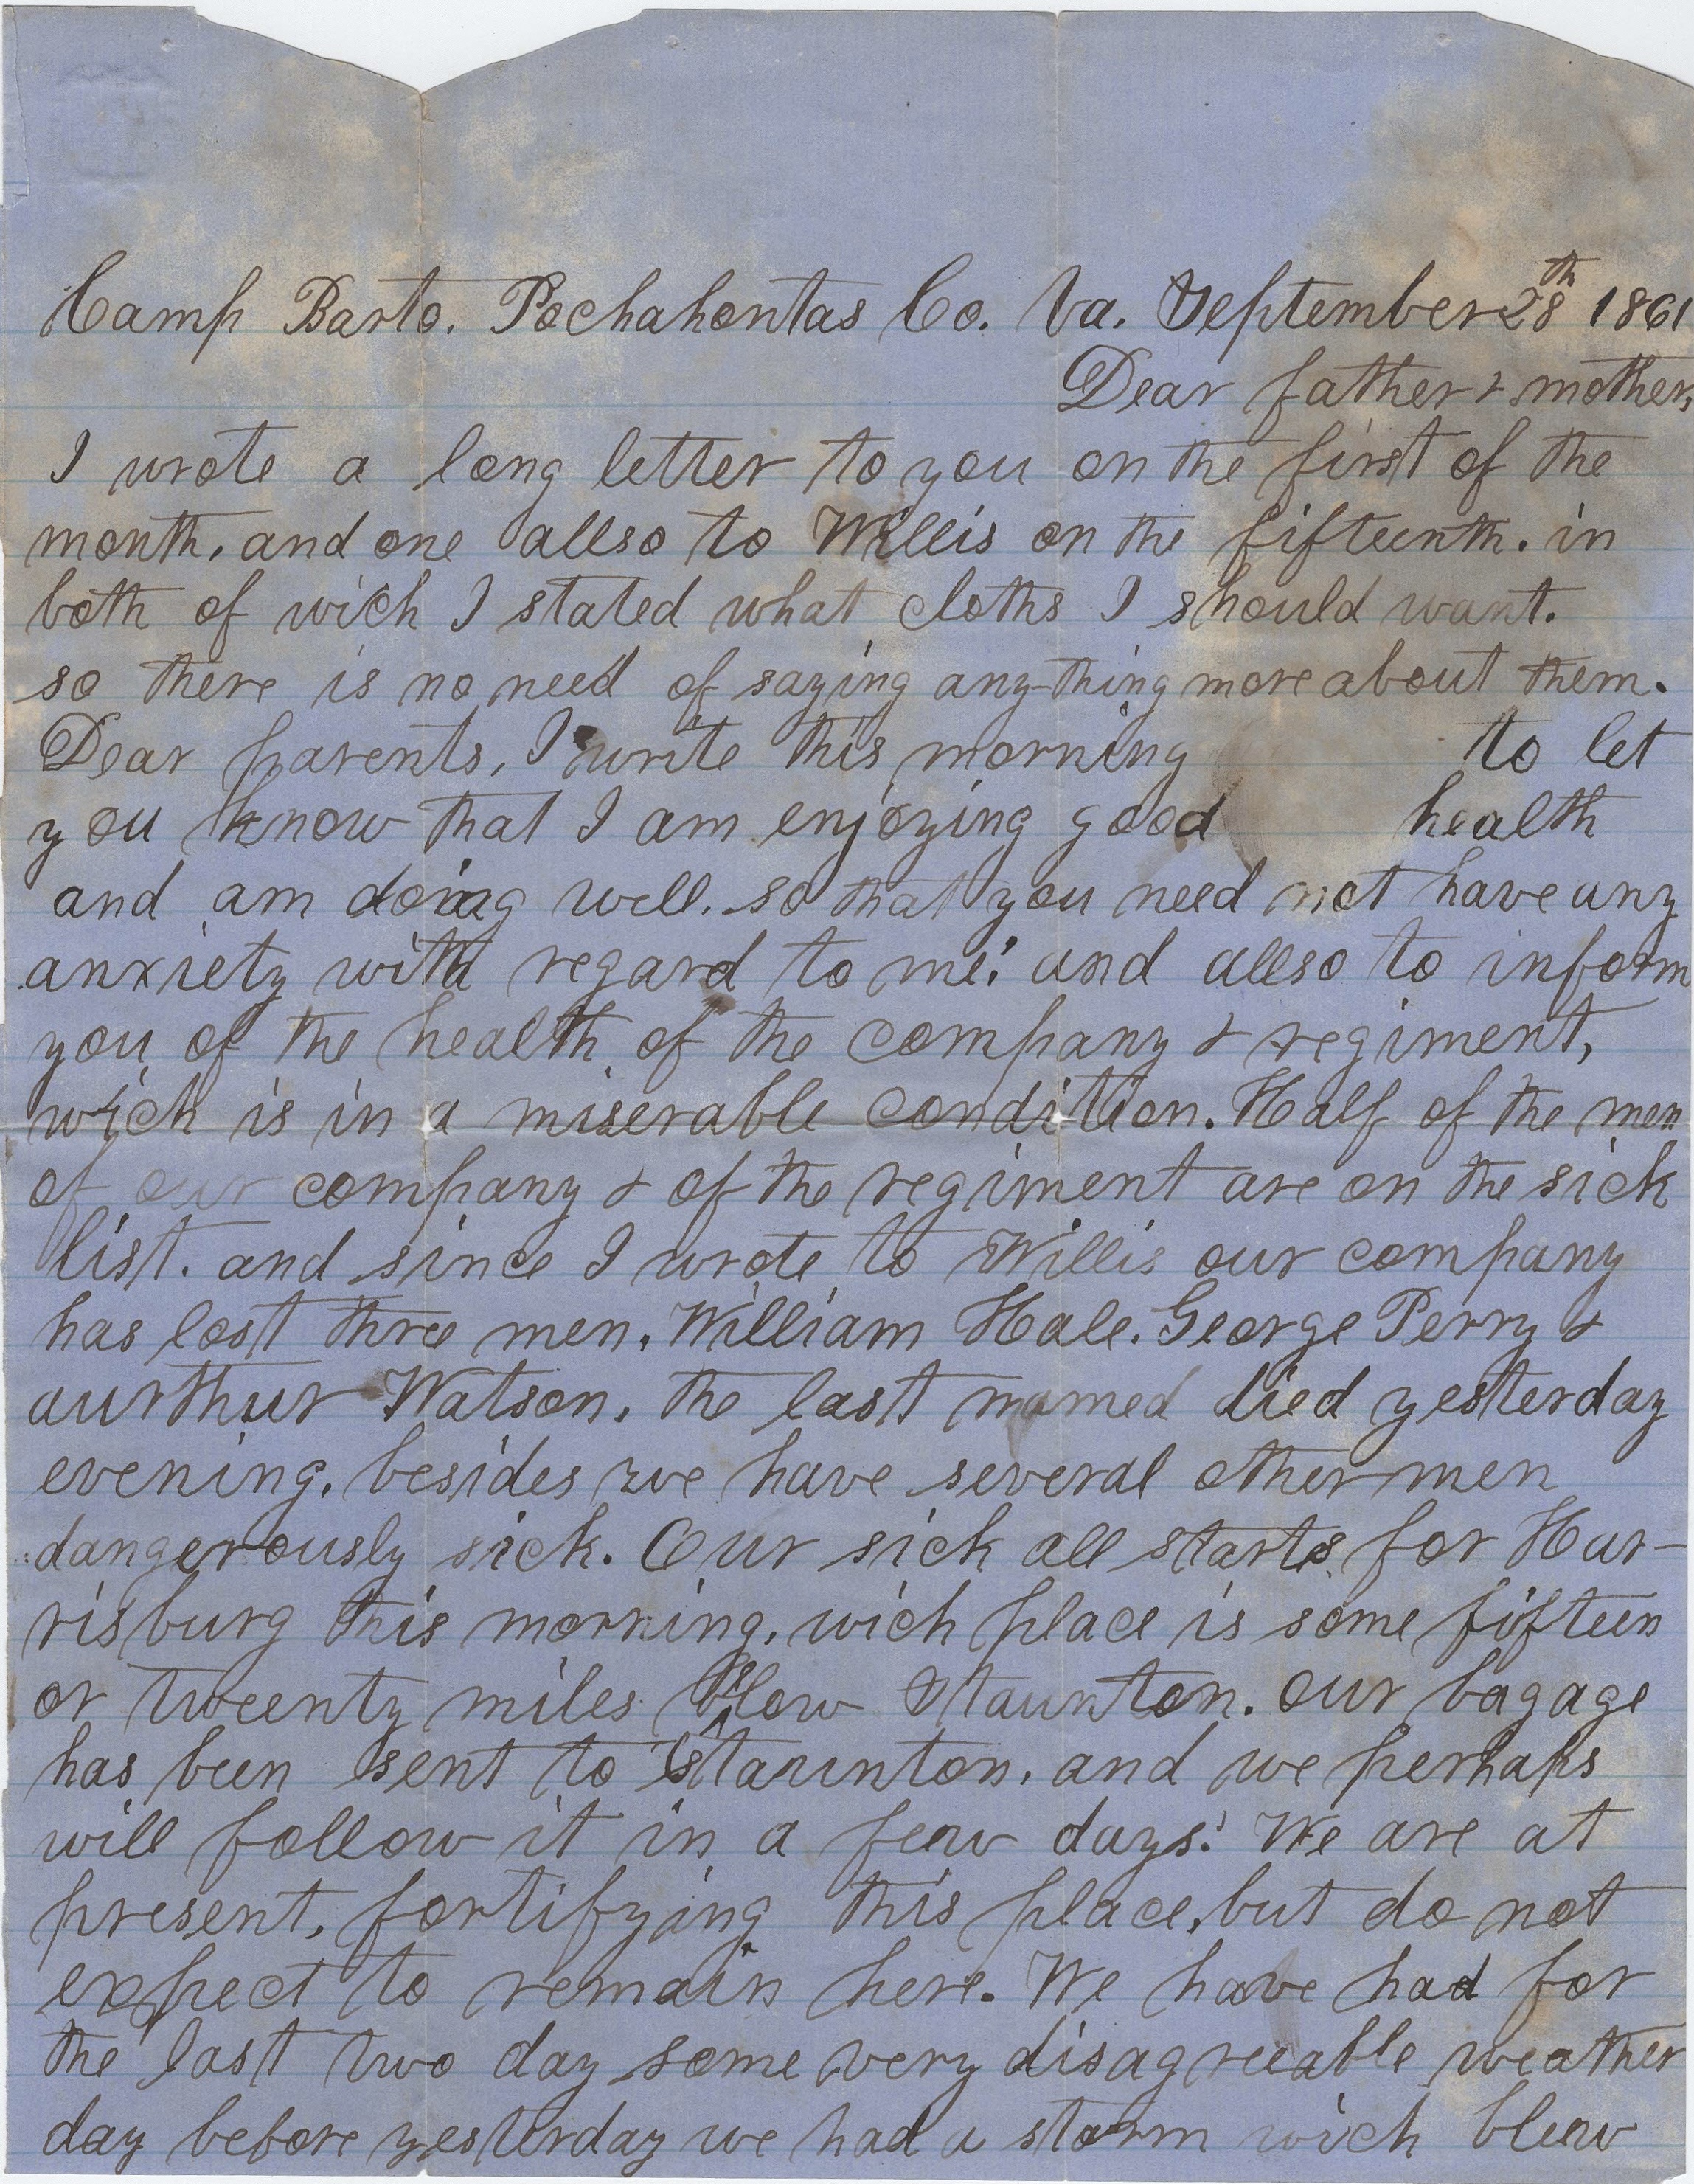 Camp Barto. Pochahontas Co. Va. September 28th 1861
Dear father & mother,
I wrote a long letter to you on the first of the
month. and one allso to Willis on the fifteenth. in
both of wich I stated what cloths I should want.
so there is no need of saying any-thing more about them.
Dear parents, I write this morning to let
you know that I am enjoying good health
and am doing well. so that you need not have any
anxiety with regard to me: and allso to inform
you of the health of the company & regiment,
wich is in a miserable condition. Half of the men
of our company & of the regiment are on the sick
list. and since I wrote to Willis our company
has lost three men. William Hale. George Perry &
aurthur Watson. the last named died yesterday
evening. besides we have several other men
dangerously sick. Our sick all starts for Har-
risburg this morning. wich place is some fifteen
or tweenty miles blow Staunton. our bagage
has been sent to Staunton. and we perhaps
will follow it in a few days: We are at
present. fortifying this place, but do not
expect to remain here. We have had for
the last two day some very disagreeable weather
day before yesterday we had a storm wich blew